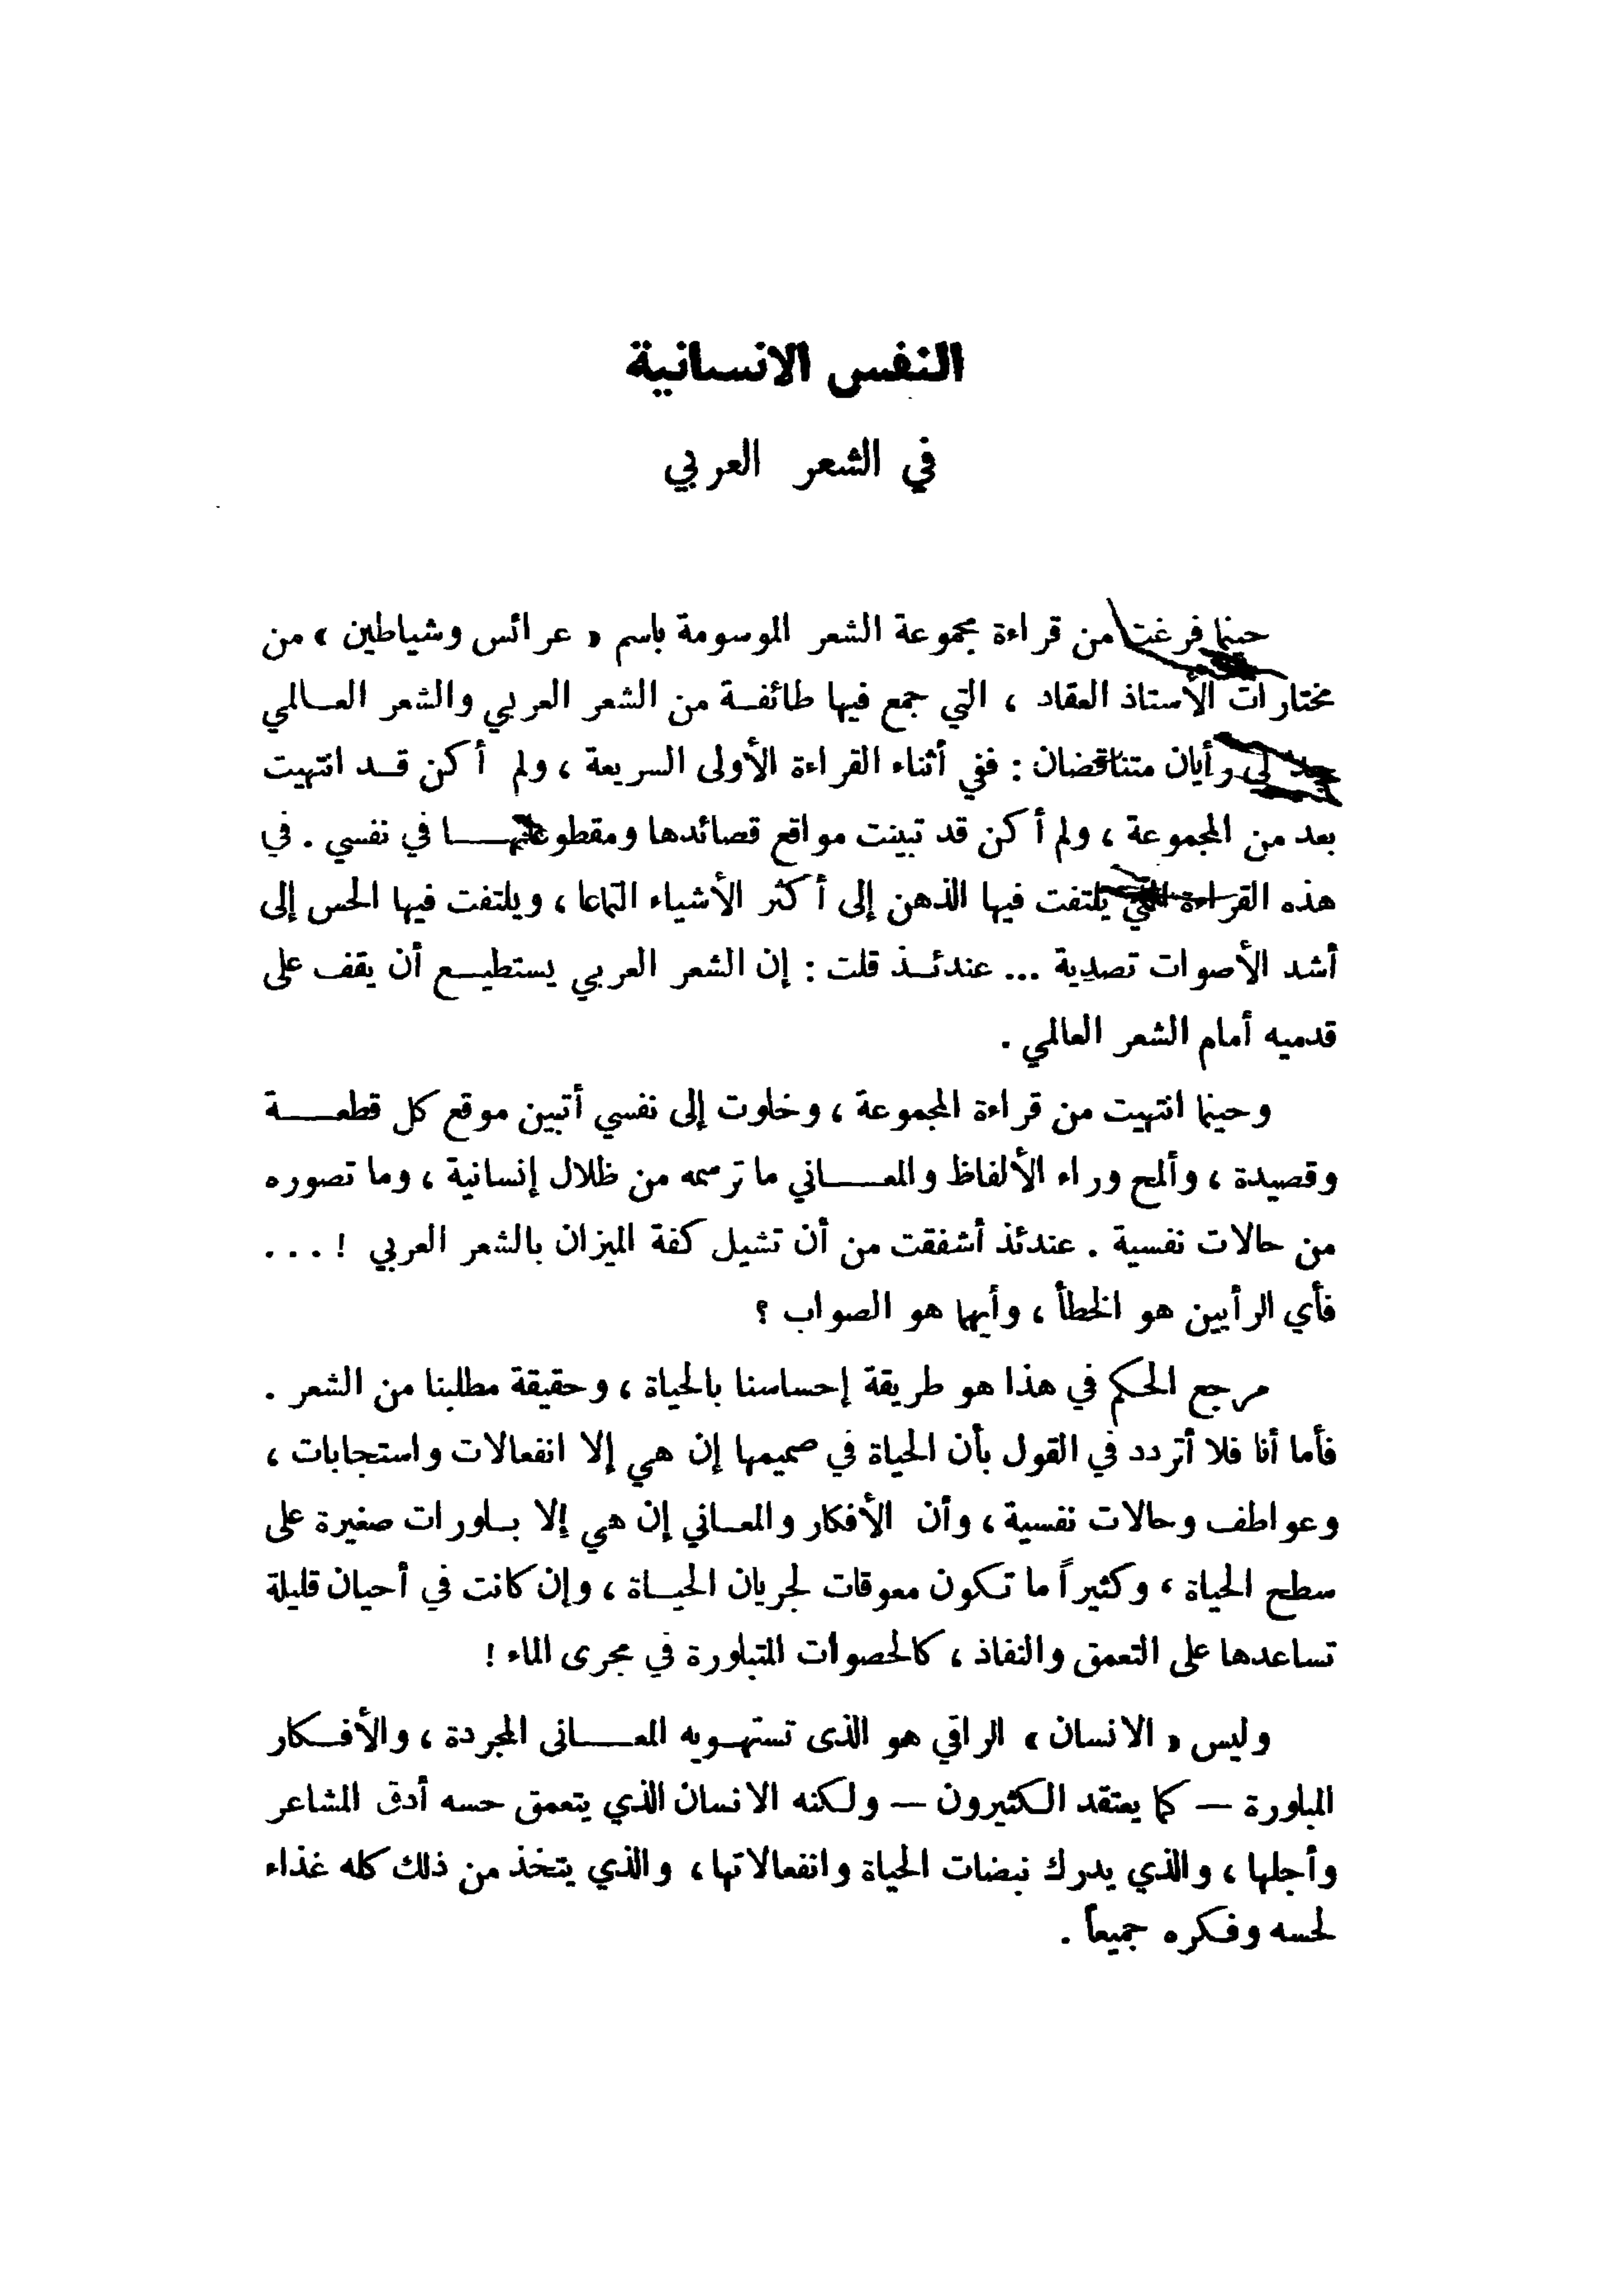 النفس الانسانية
في الشعر العربي
حينما فرغت من قراءة مجموعة الشعر الموسومة باسم « عرائس وشياطين » من
مختارات الأستاذ العقاد ، التي جمع فيها طائفة من الشعر العربي والشعر العالمي
جد لي رأيان متناقضان : ففي أثناء القراءة الأولى السريعة ، ولم أكن قد انتهيت
بعد من المجموعة ، ولم أكن قد تبينت مواقع قصائدها ومقطوعاتها في نفسي . في
هذه القراءة التي يلتفت فيها الذهن إلى أكثر الأشياء التماعا ، ويلتفت فيها الحس إلى
أشد الأصوات تصدية ... عندئذ قلت : إن الشعر العربي يستطيع أن يقف على
قدميه أمام الشعر العالمي .
وحينما انتهيت من قراءة المجموعة ، وخلوت إلى نفسي أتبين موقع كل قطعة
وقصيدة ، وألمح وراء الألفاظ والمعاني ما ترسمه من ظلال إنسانية ، وما تصوره
من حالات نفسية . عندئذ أشفقت من أن تشيل كفة الميزان بالشعر العربي ! ...
فأي الرأيين هو الخطأ ، وأيهما هو الصواب ؟
مرجع الحكم في هذا هو طريقة إحساسنا بالحياة ، وحقيقة مطلبنا من الشعر .
فأما أنا فلا أتردد في القول بأن الحياة في صميمها إن هي إلا انفعالات واستجابات ،
وعواطف وحالات نفسية ، وأن الأفكار والمعاني إن هي إلا بلورات صغيرة على
سطح الحياة ، وكثيراً ما تكون معوقات لجريان الحياة ، وإن كانت في أحيان قليلة
تساعدها على التعمق والنفاذ ، كالحصوات المتبلورة في مجرى الماء !
وليس « الانسان » الراقي هو الذى تستهويه المعانى المجردة ، والأفكار
المبلورة — كما يعتقد الكثيرون — ولكنه الانسان الذي يتعمق حسه أدق المشاعر
وأجلها ، والذي يدرك نبضات الحياة وانفعالاتها ، والذي يتخذ من ذلك كله غذاء
لحسه وفكره جميعاً .